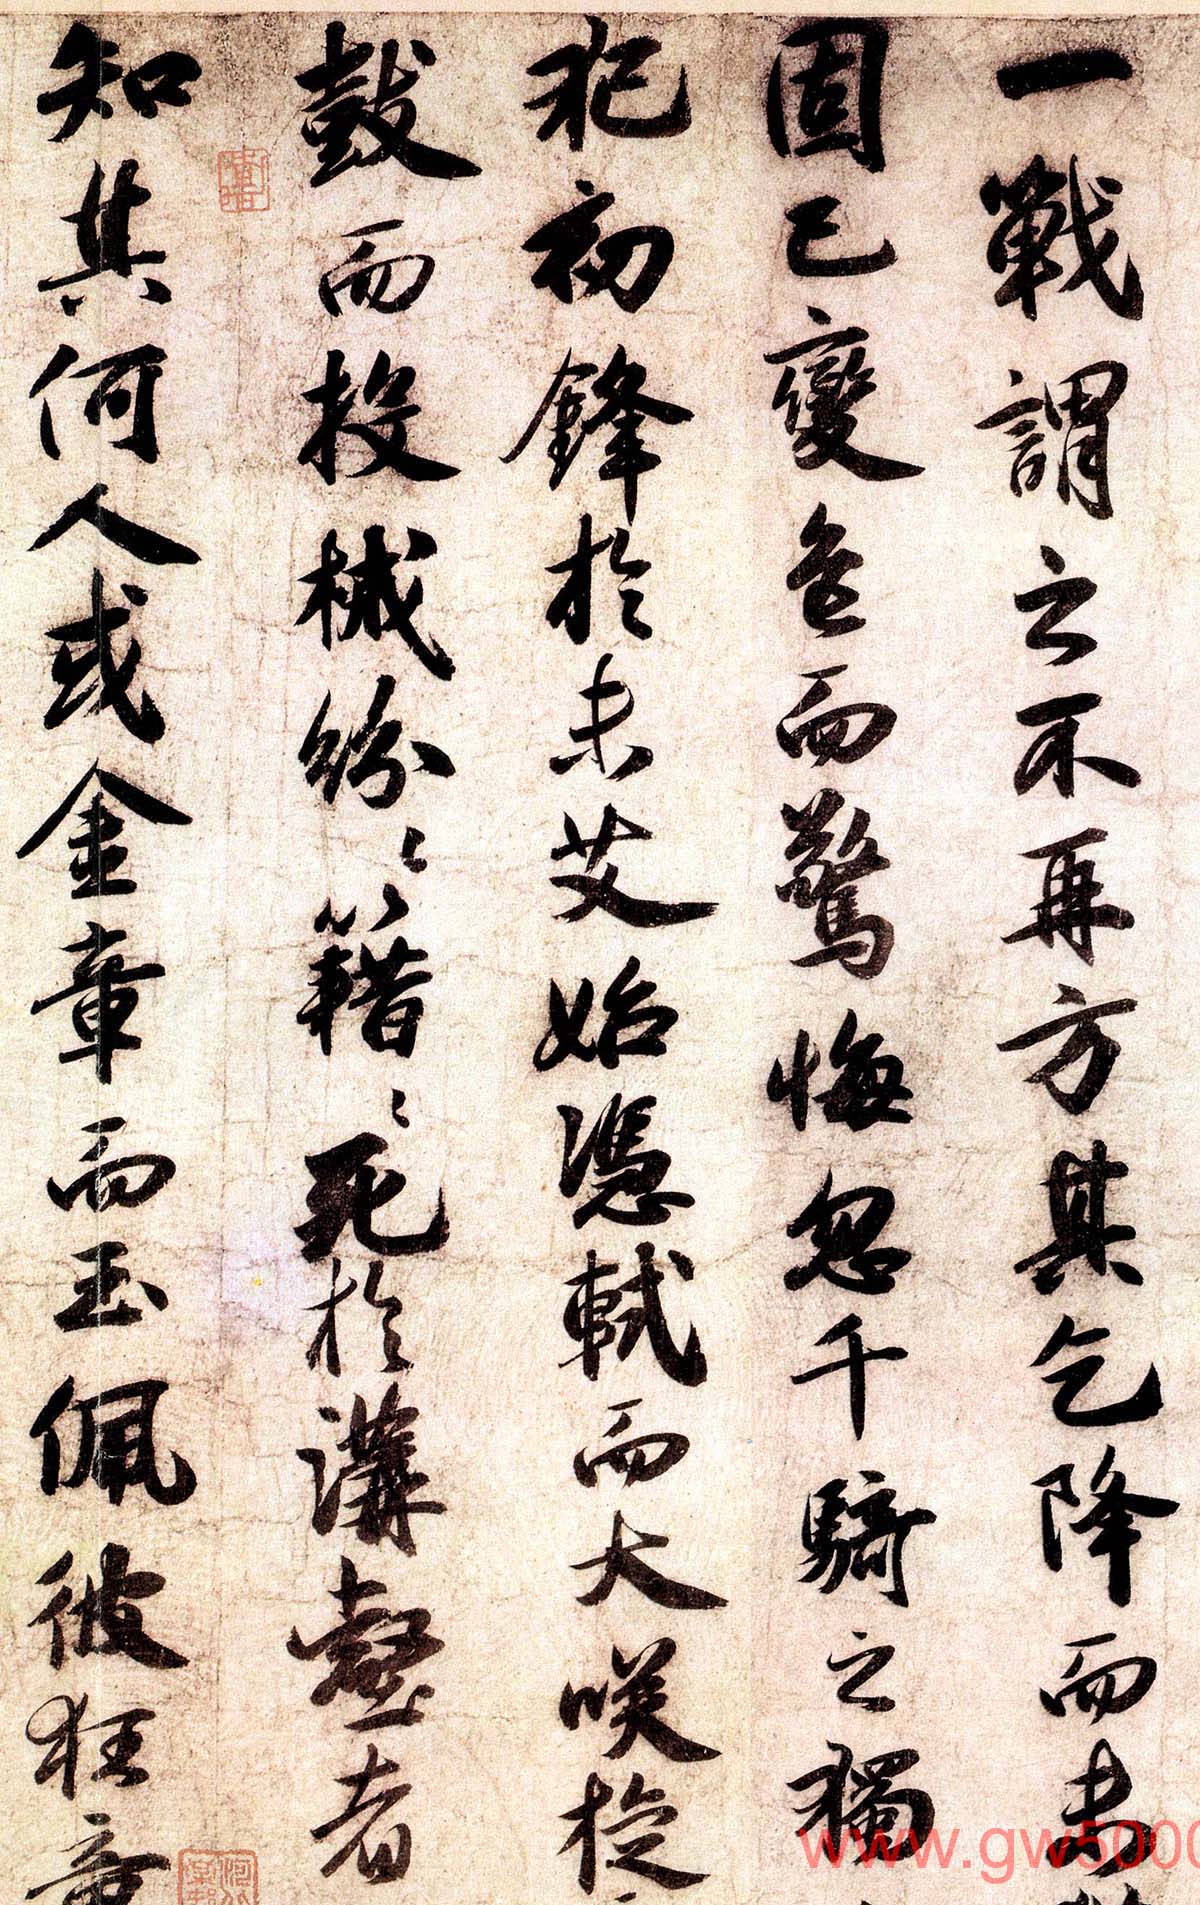 一戰謂之不再方其乞降而去
固已變色而驚悔忽千騎之獨
犯初鋒於未艾始憑軾而大咲旋
鼓而投械紛〻籍〻死於溝壑者
知其何人或金章而玉佩彼狂童
www.gw500